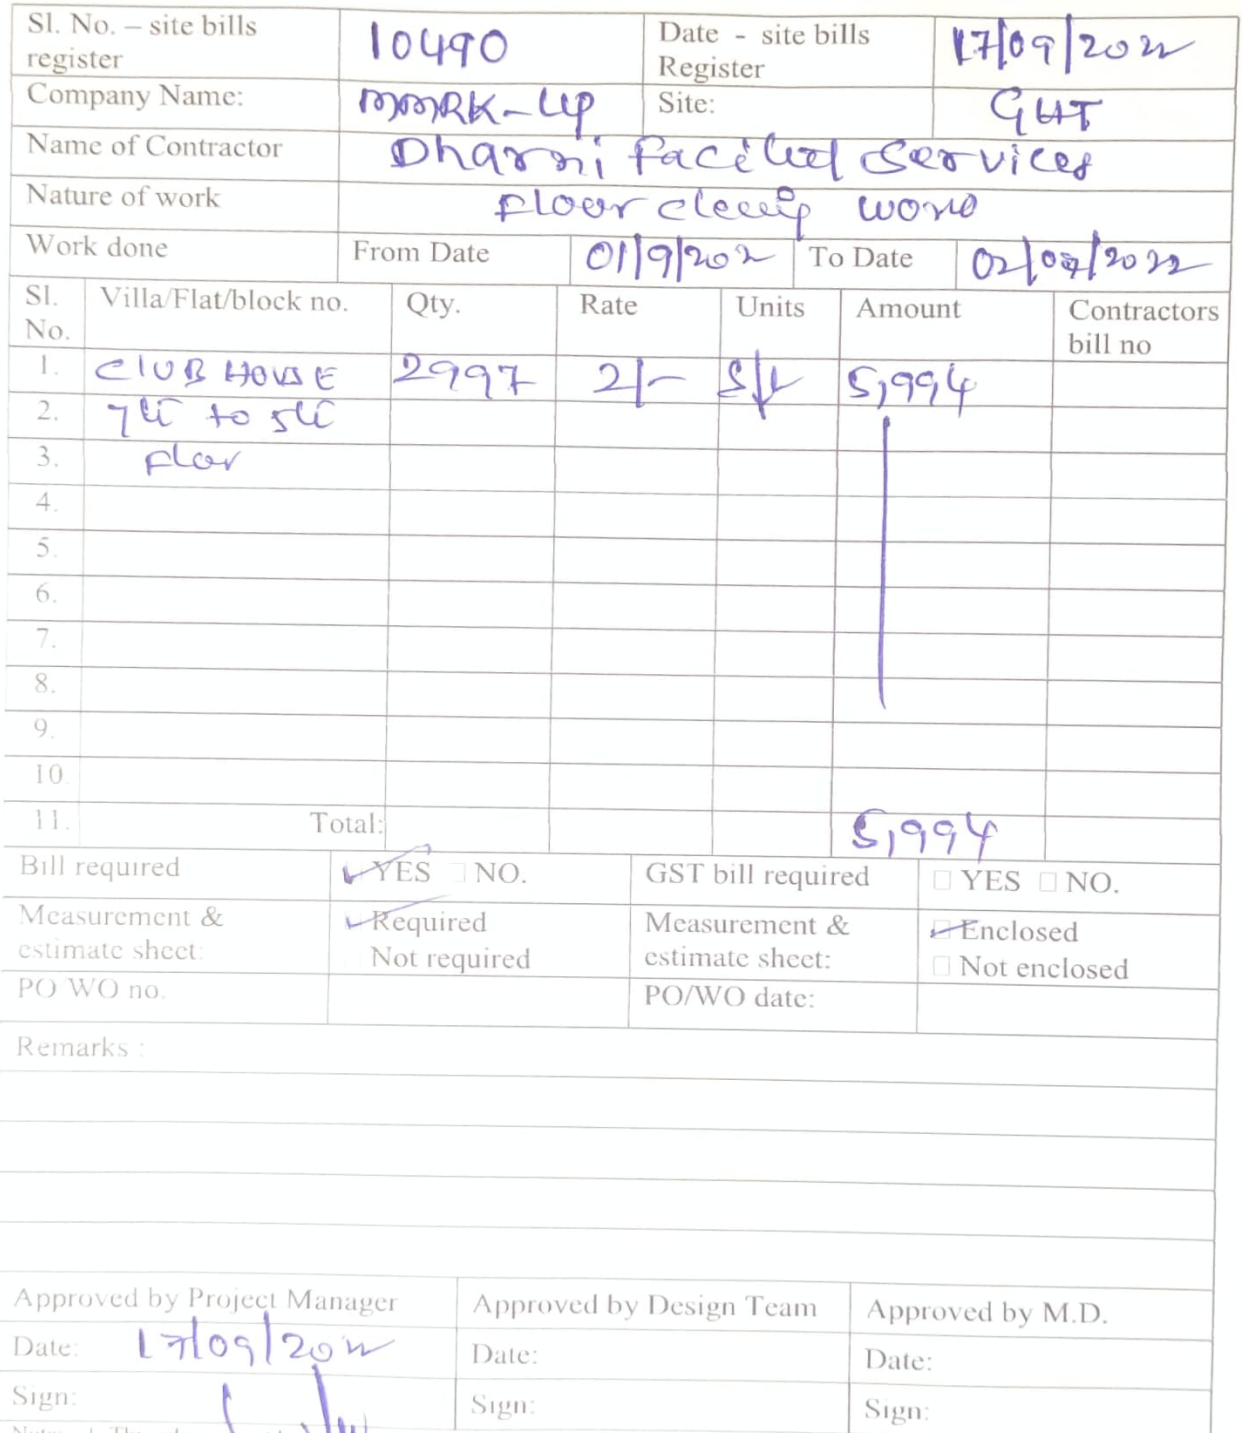 Sl. No. – site bills register 10490 Date - site bills Register 17/09/2022
Company Name: MMRK-LLP Site: GHT
Name of Contractor Dharni Services
Nature of work Floor work
Work done From Date 01/9/202 To Date 02/09/2022
Sl. No. Villa/Flat/block no. Qty. Rate Units Amount Contractors bill no
1. CLUB HOUSE 2997 2/- 5,994
2. to
3. Flor
4.
5.
6.
7.
8.
9.
10.
11. Total: 5,994
Bill required YES NO. GST bill required YES NO.
Measurement & estimate sheet: Required Not required Measurement & estimate sheet: Enclosed Not enclosed
PO WO no. PO/WO date:
Remarks :
Approved by Project Manager Approved by Design Team Approved by M.D.
Date: 17/09/2022 Date: Date:
Sign: Sign: Sign: